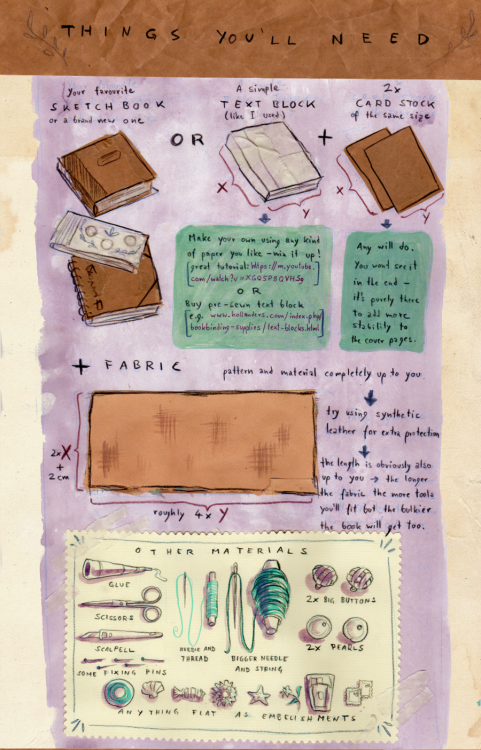 THINGS YOU'LL NEED
your favourite
SKETCHBOOK
or a brand new one
OR
A simple
TEXT BLOCK
(like I used)
+
2x
CARD STOCK
of the same size
X
Y
X
Y
Make your own using any kind
of paper you like - mix it up!
[great tutorial: https://m.youtube.
com/watch?v=
OR
Buy pre-sewn text block
[e.g. www.hollanders.com/index.php/
bookbinding-supplies/text-blocks.html]
Any will do.
You wont see it
in the end -
it's purely there
to add more
stability to
the cover pages.
+ FABRIC
pattern and material completely up to you
try using synthetic
leather for extra protection
2x X
+
2cm
the length is obviously also
up to you → the longer
the fabric the more tools
you'll fit but the bulkier
the book will get too.
roughly 4x Y
OTHER MATERIALS
GLUE
SCISSORS
SCALPELL
SOME FIXING PINS
NEEDLE AND
THREAD
BIGGER NEEDLE
AND STRING
2x BIG BUTTONS
2x PEARLS
ANYTHING FLAT AS EMBELISHMENTS